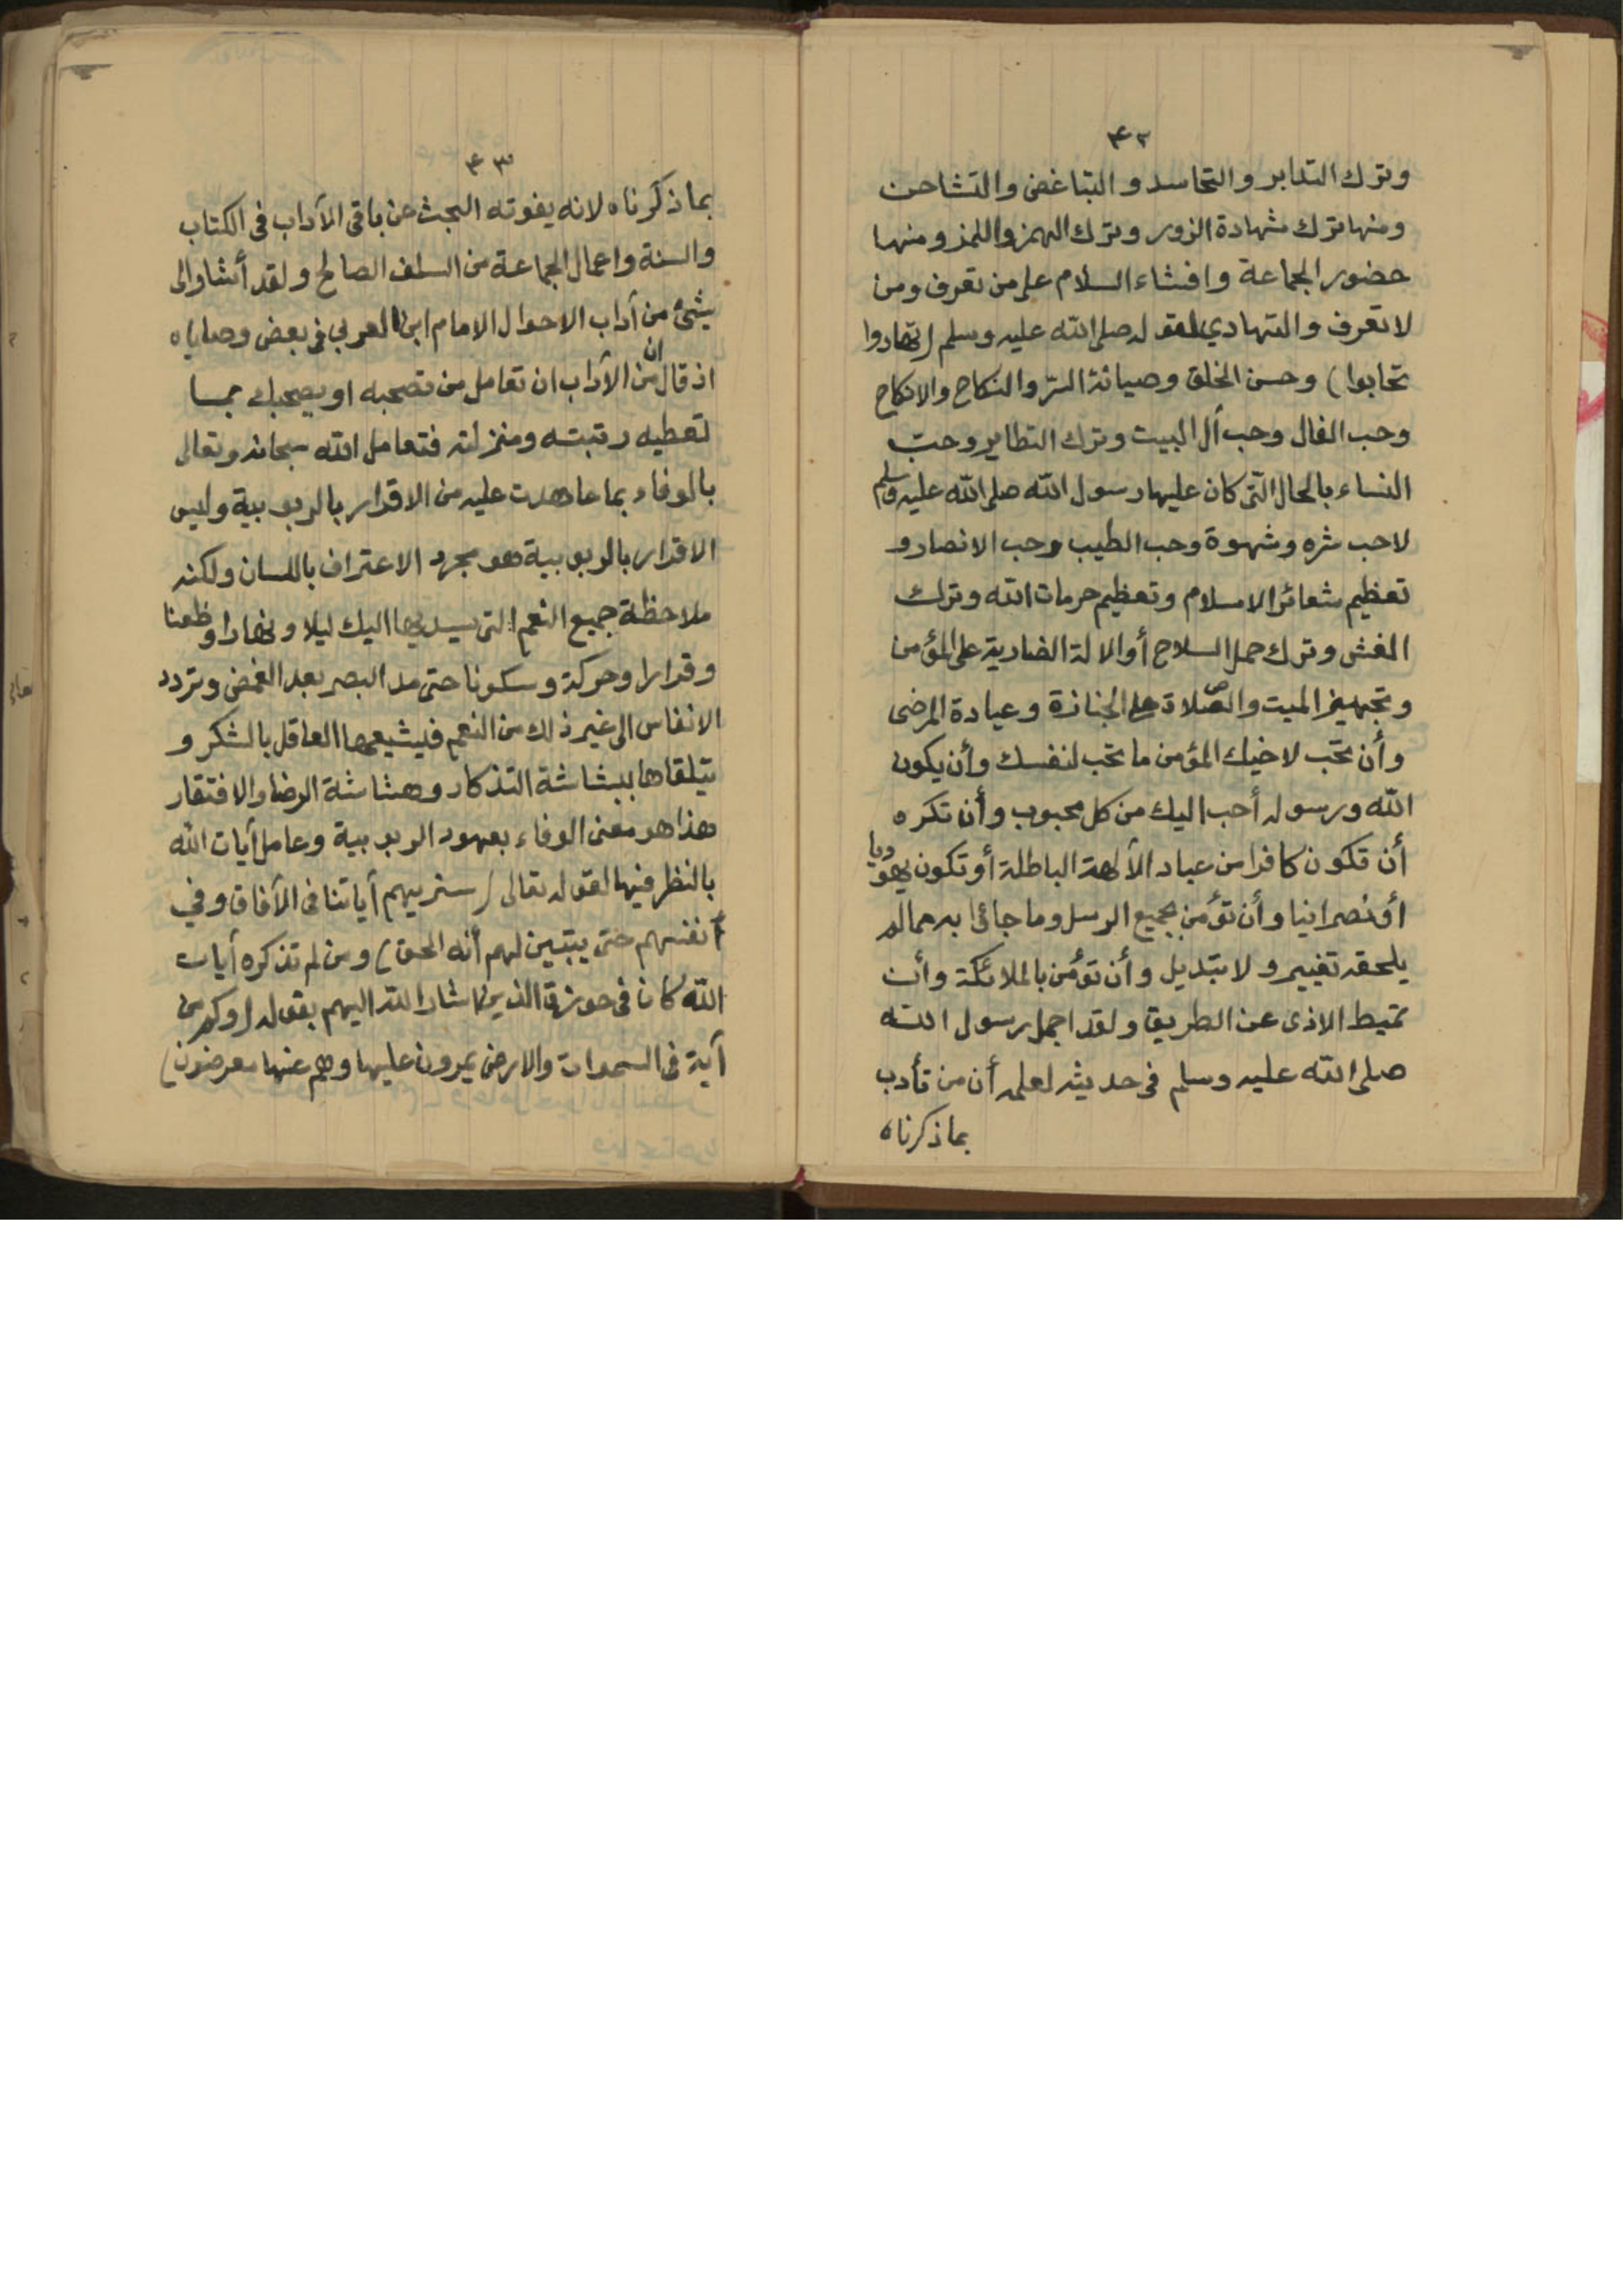 ٤٢
وترك التدابر والتحاسد والتباغض والتشاحن
ومنها ترك شهادة الزور وترك الهمز واللمز ومنها
حضور الجماعة وافشاء السلام على من تعرف ومن
لا تعرف والتهادي لقوله صلى الله عليه وسلم (تهادوا
تحابوا) وحسن الخلق وصيانة السرّ والنكاح والانكاح
وحب الفال وحب أل البيت وترك التطاير وحبّ
النساء بالحال التى كان عليها رسول الله صلى الله عليه وسلم
لاحب شره وشهوة وحب الطيب وحب الانصار و
تعظيم شعائر الاسلام وتعظيم حرمات الله وترك
الغش وترك حمل السلاح أو الالة الضارية على المؤمن
وتجهيز الميت والصلاة على الجنازة وعيادة المرضى
وأن تحب لاخيك المؤمن ما تحب لنفسك وأن يكون
الله ورسوله أحب اليك من كل محبوب وأن تكره
أن تكون كافرا من عباد الألهة الباطلة أو تكون يهوديا
أو نصرانيا وأن تؤمن بجميع الرسل وما جائوا به مما لم
يلحقه تغيير ولا تبديل وأن تؤمن بالملائكة وأن
تميط الاذى عن الطريق ولقد اجمل رسول الله
صلى الله عليه وسلم فى حديثه لعلمه أن من تأدب
بما ذكرناه
٤٣
بما ذكرناه لانه يفوته البحث عن باقى الأداب فى الكتاب
والسنة واعمال الجماعة من السلف الصالح ولقد أشار الى
شئ من أداب الاحوال الامام ابن العربي فى بعض وصاياه
اذ قال ان من الأداب ان تعامل من تصحبه او يصحبك بما
تعطيه رتبته ومنزلته فتعامل الله سبحانه وتعالى
بالوفاء بما عاهدت عليه من الاقرار بالربوبية وليس
الاقرار بالربوبية هو مجرد الاعتراف باللسان ولكنه
ملاحظة جميع النعم التى يسديها اليك ليلا ونهارا وظعنا
وقرارا وحركة وسكونا حتى مد البصر بعد الغمض وتردد
الانفاس الى غير ذلك من النعم فيشيعها العاقل بالشكر و
يتلقاها ببشاشة التذكار وهشاشة الرضا والافتقار
هذا هو معنى الوفاء بعهود الربوبية وعامل أيات الله
بالنظر فيها لقوله تعالى (سنريهم أياتنا فى الأفاق وفي
أنفسهم حتى يتبين لهم أنه الحق) ومن لم تذكره أيات
الله كان فى حوزة الذين اشار الله اليهم بقوله (وكم من
أية فى السموات والارض يمرون عليها وهم عنها معرضون)